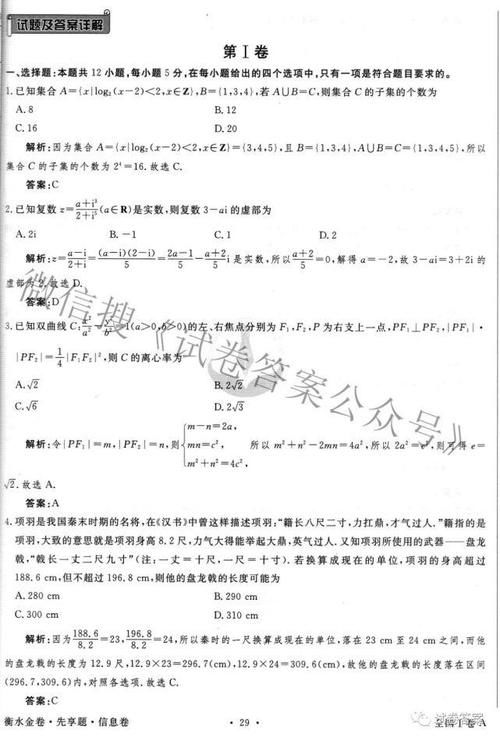 试题及答案详解
第Ⅰ卷
一、选择题:本题共 12 小题,每小题 5 分,在每小题给出的四个选项中,只有一项是符合题目要求的。
1.已知集合 A={x|log₂(x-2)<2,x∈Z},B={1,3,4},若 A∪B=C,则集合 C 的子集的个数为
A.8 B.12
C.16 D.20
解析:因为集合 A={x|log₂(x-2)<2,x∈Z}={3,4,5},且 B={1,3,4},A∪B=C={1,3,4,5},所以
集合 C 的子集的个数为 2⁴=16.故选 C.
答案:C
2.已知复数 z=(a+i³)/(2+i⁵)(a∈R)是实数,则复数 3-ai 的虚部为
A.2i B.-1 C.1 D.2
解析:z=(a-i)/(2+i)=(a-i)(2-i)/5=(2a-1)/5-(a+2)/5 i 是实数,所以(a+2)/5=0,解得 a=-2,故 3-ai=3+2i 的
虚部为 2.故选 D.
答案:D
3.已知双曲线 C:x²/a²-y²/b²=1(a>0,b>0)的左、右焦点分别为 F₁,F₂,P 为右支上一点,PF₁⊥PF₂,|PF₁|·
|PF₂|=1/4|F₁F₂|²,则 C 的离心率为
A.√2 B.2√2
C.√6 D.2√3
解析:令|PF₁|=m,|PF₂|=n,则{m-n=2a, mn=c², m²+n²=4c², 所以 m²+n²-2mn=4a²,所以 2a²=c²,则可得 e=
√2.故选 A.
答案:A
4.项羽是我国秦末时期的名将,在《汉书》中曾这样描述项羽:“籍长八尺二寸,力扛鼎,才气过人.”籍指的是
项羽,大致的意思就是项羽身高 8.2 尺,力气大得能举起大鼎,英气过人.又知项羽所使用的武器——盘龙
戟,“戟长一丈二尺九寸”(注:一丈=十尺,一尺=十寸).若换算成现在的单位,项羽的身高超过
188.6 cm,但不超过 196.8 cm,则他的盘龙戟的长度可能为
A.280 cm B.290 cm
C.300 cm D.310 cm
解析:因为188.6/8.2=23,196.8/8.2=24,所以秦时的一尺换算成现在的单位,落在 23 cm 至 24 cm 之间,而他
的盘龙戟的长度为 12.9 尺,12.9×23=296.7(cm),12.9×24=309.6(cm),故他的盘龙戟的长度落在区间
(296.7,309.6]内,对照各选项.故选 C.
答案:C
衡水金卷·先享题·信息卷 ·29· 全国Ⅰ卷 A
微信搜《试卷答案公众号》
试卷答案